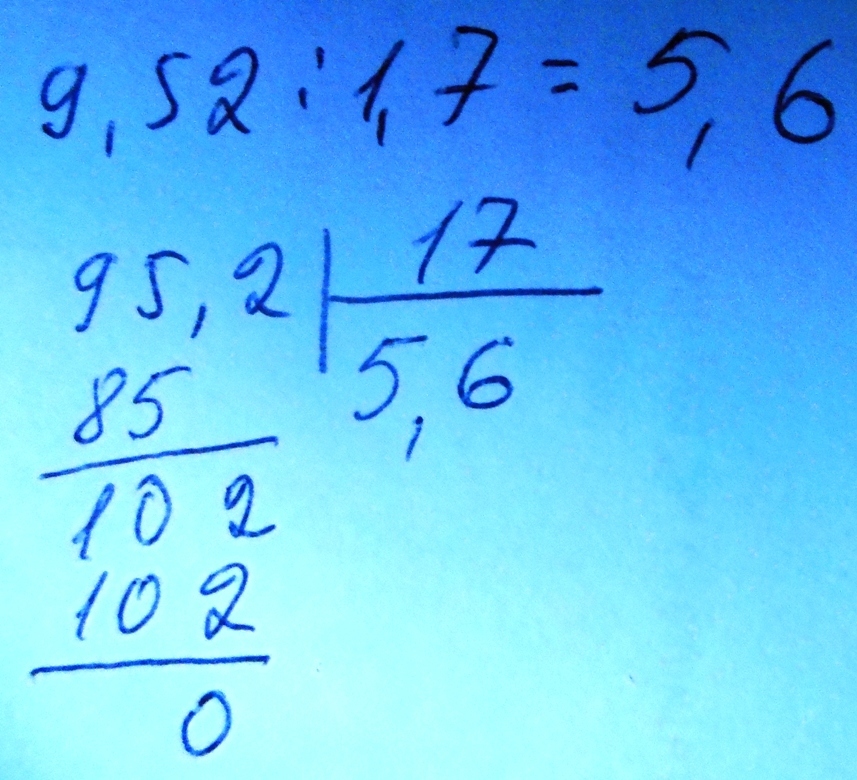 9,52:1,7=5,6
95,2|17
85 5,6
102
102
0